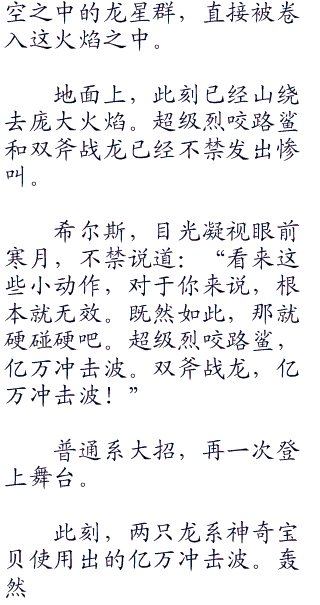 空之中的龙星群，直接被卷
入这火焰之中。
地面上，此刻已经山绕
去庞大火焰。超级烈咬路鲨
和双斧战龙已经不禁发出惨
叫。
希尔斯，目光凝视眼前
寒月，不禁说道：“看来这
些小动作，对于你来说，根
本就无效。既然如此，那就
硬碰硬吧。超级烈咬路鲨，
亿万冲击波。双斧战龙，亿
万冲击波！”
普通系大招，再一次登
上舞台。
此刻，两只龙系神奇宝
贝使用出的亿万冲击波。轰
然